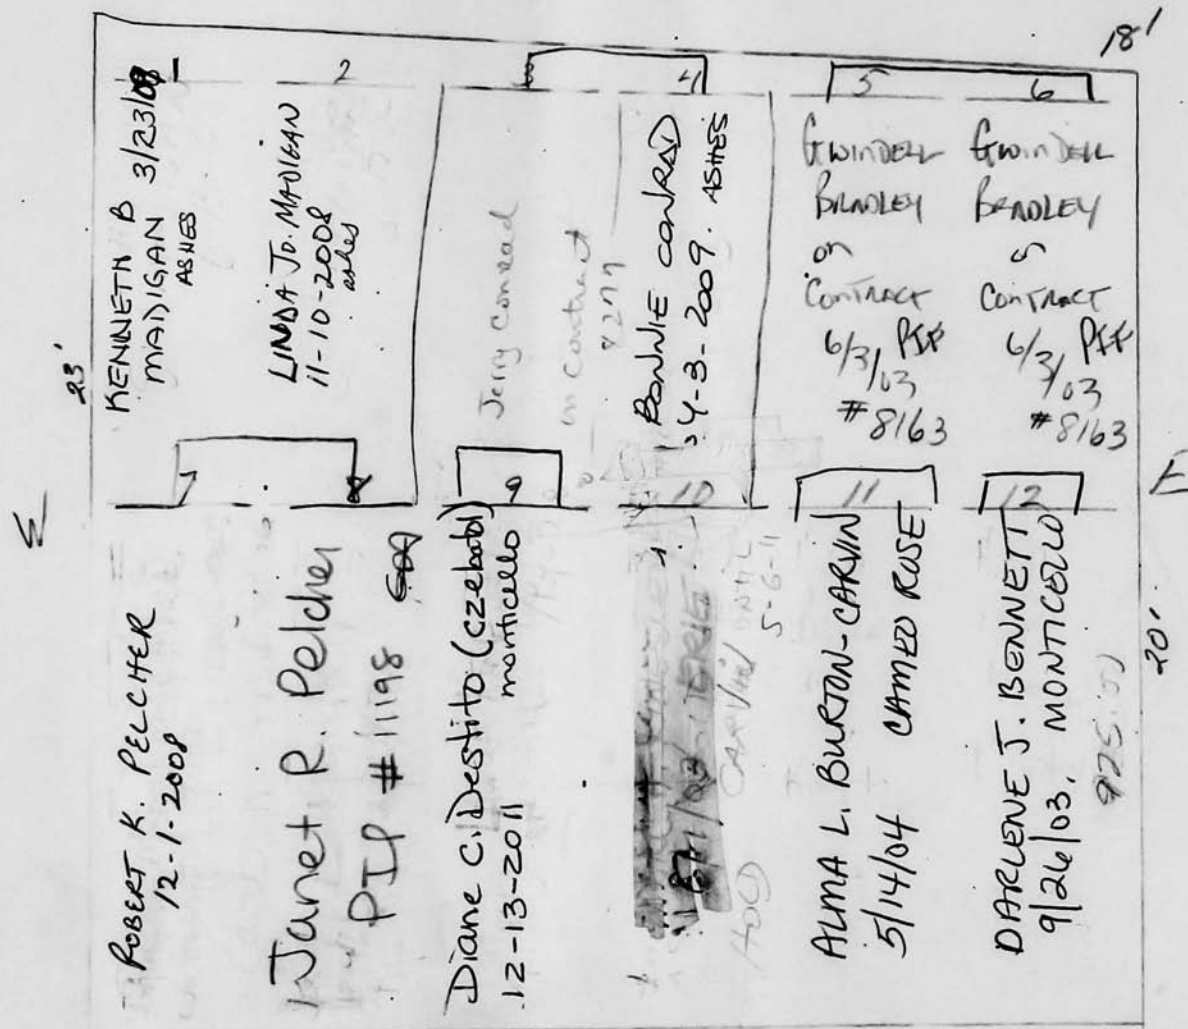 18'
23'
1
KENNETH B
MADIGAN 3/23/08
ASHES
2
LINDA JO. MADIGAN
11-10-2008
ashes
Jerry Conrad
on Contract
8277
4
BONNIE CONRAD
4-3-2009. ASHES
5
GWINDELL
BRADLEY
on
CONTRACT
6/3/03 PIF
#8163
6
GWINDELL
BRADLEY
on
CONTRACT
6/3/03 PIF
#8163
7
ROBERT K. PELCHER
12-1-2008
8
Janet R. Pelcher
PIF #11198
9
Diane C. Destito (Czebotol)
12-13-2011 monticello
10
HOLD CARVIN UNTIL
5-6-11
11
ALMA L. BURTON-CARVIN
5/14/04 CAMEO ROSE
12
DARLENE J. BENNETT
9/26/03. MONTICELLO
925.00
E
20'